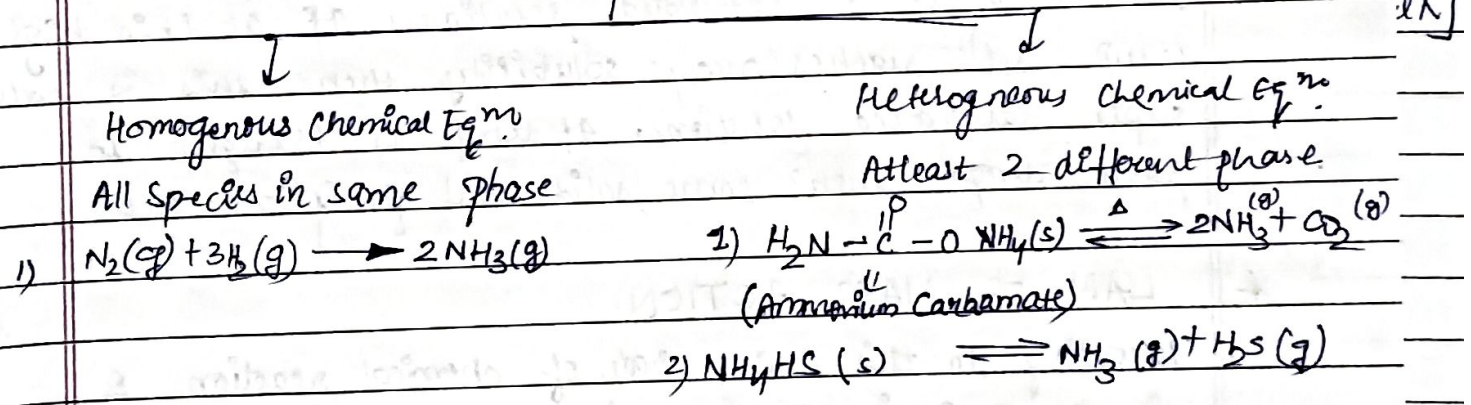 Homogenous Chemical Eqm
All Species in same phase
1) N₂(g) + 3H₂(g) → 2NH₃(g)
Heterogneous Chemical Eqm.
Atleast 2 different phase
1) H₂N - C - O NH₄(s) ⇌ 2NH₃(g) + CO₂(g)
O
Δ
(Ammonium Carbamate)
2) NH₄HS (s) ⇌ NH₃ (g) + H₂S (g)